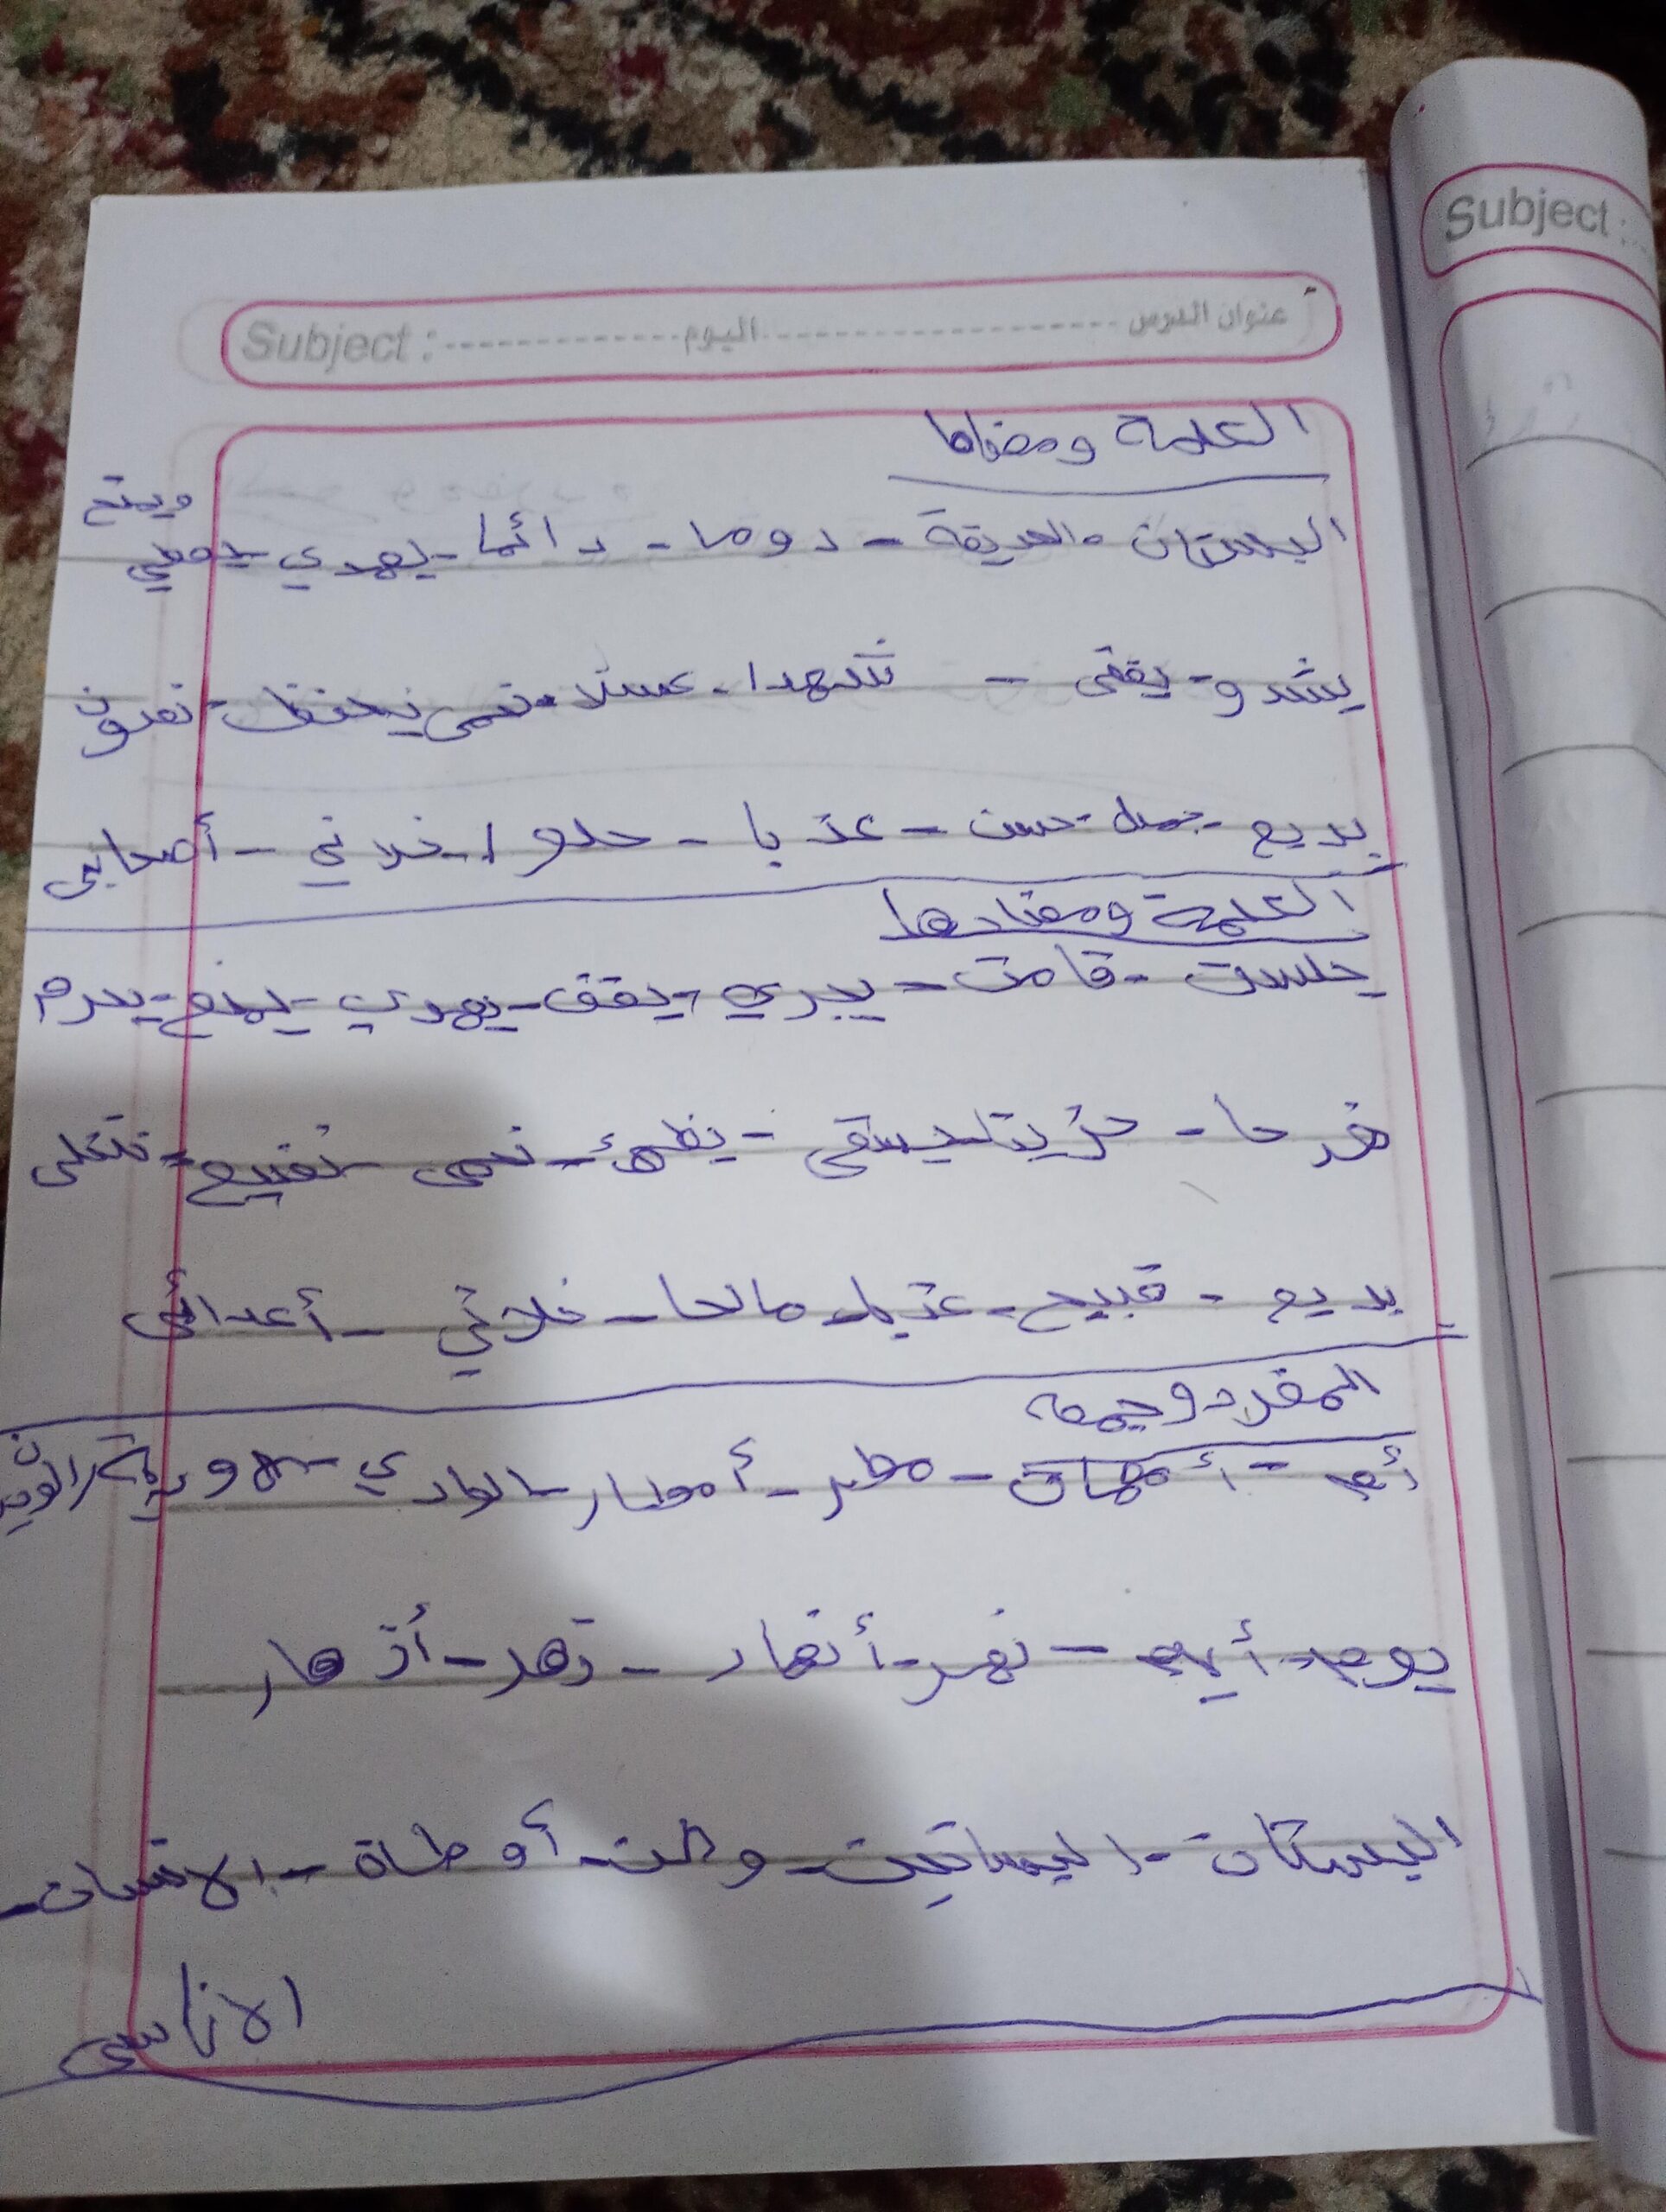 Subject :
عنوان الدرس اليوم Subject :
الكلمة ومعناها
البستان - الحديقة - دوما - دائما - يهدي - يعطي ويمنح
يشدو - يغنى - شهدا - عسلا - نحمى نحفظ - نصون
بديع - جميل - حسن - عذبا - حلوا - خلاني - أصحابى
الكلمة ومضادها
جلست - قامت - يجري - يقف - يهدي - يمنع - يحرم
فرحا - حزينا - يسقى - يظمئ - نحمى - نضيع - نتخلى
بديع - قبيح - عذبا - مالحا - خلاني - أعدائى
المفرد وجمعه
أم - أمهات - مطر - أمطار - الوادي - الاودية
يوم - أيام - نهر - أنهار - زهر - أزهار
البستان - البساتين - وطن - أوطان - الانسان -
الاناسى